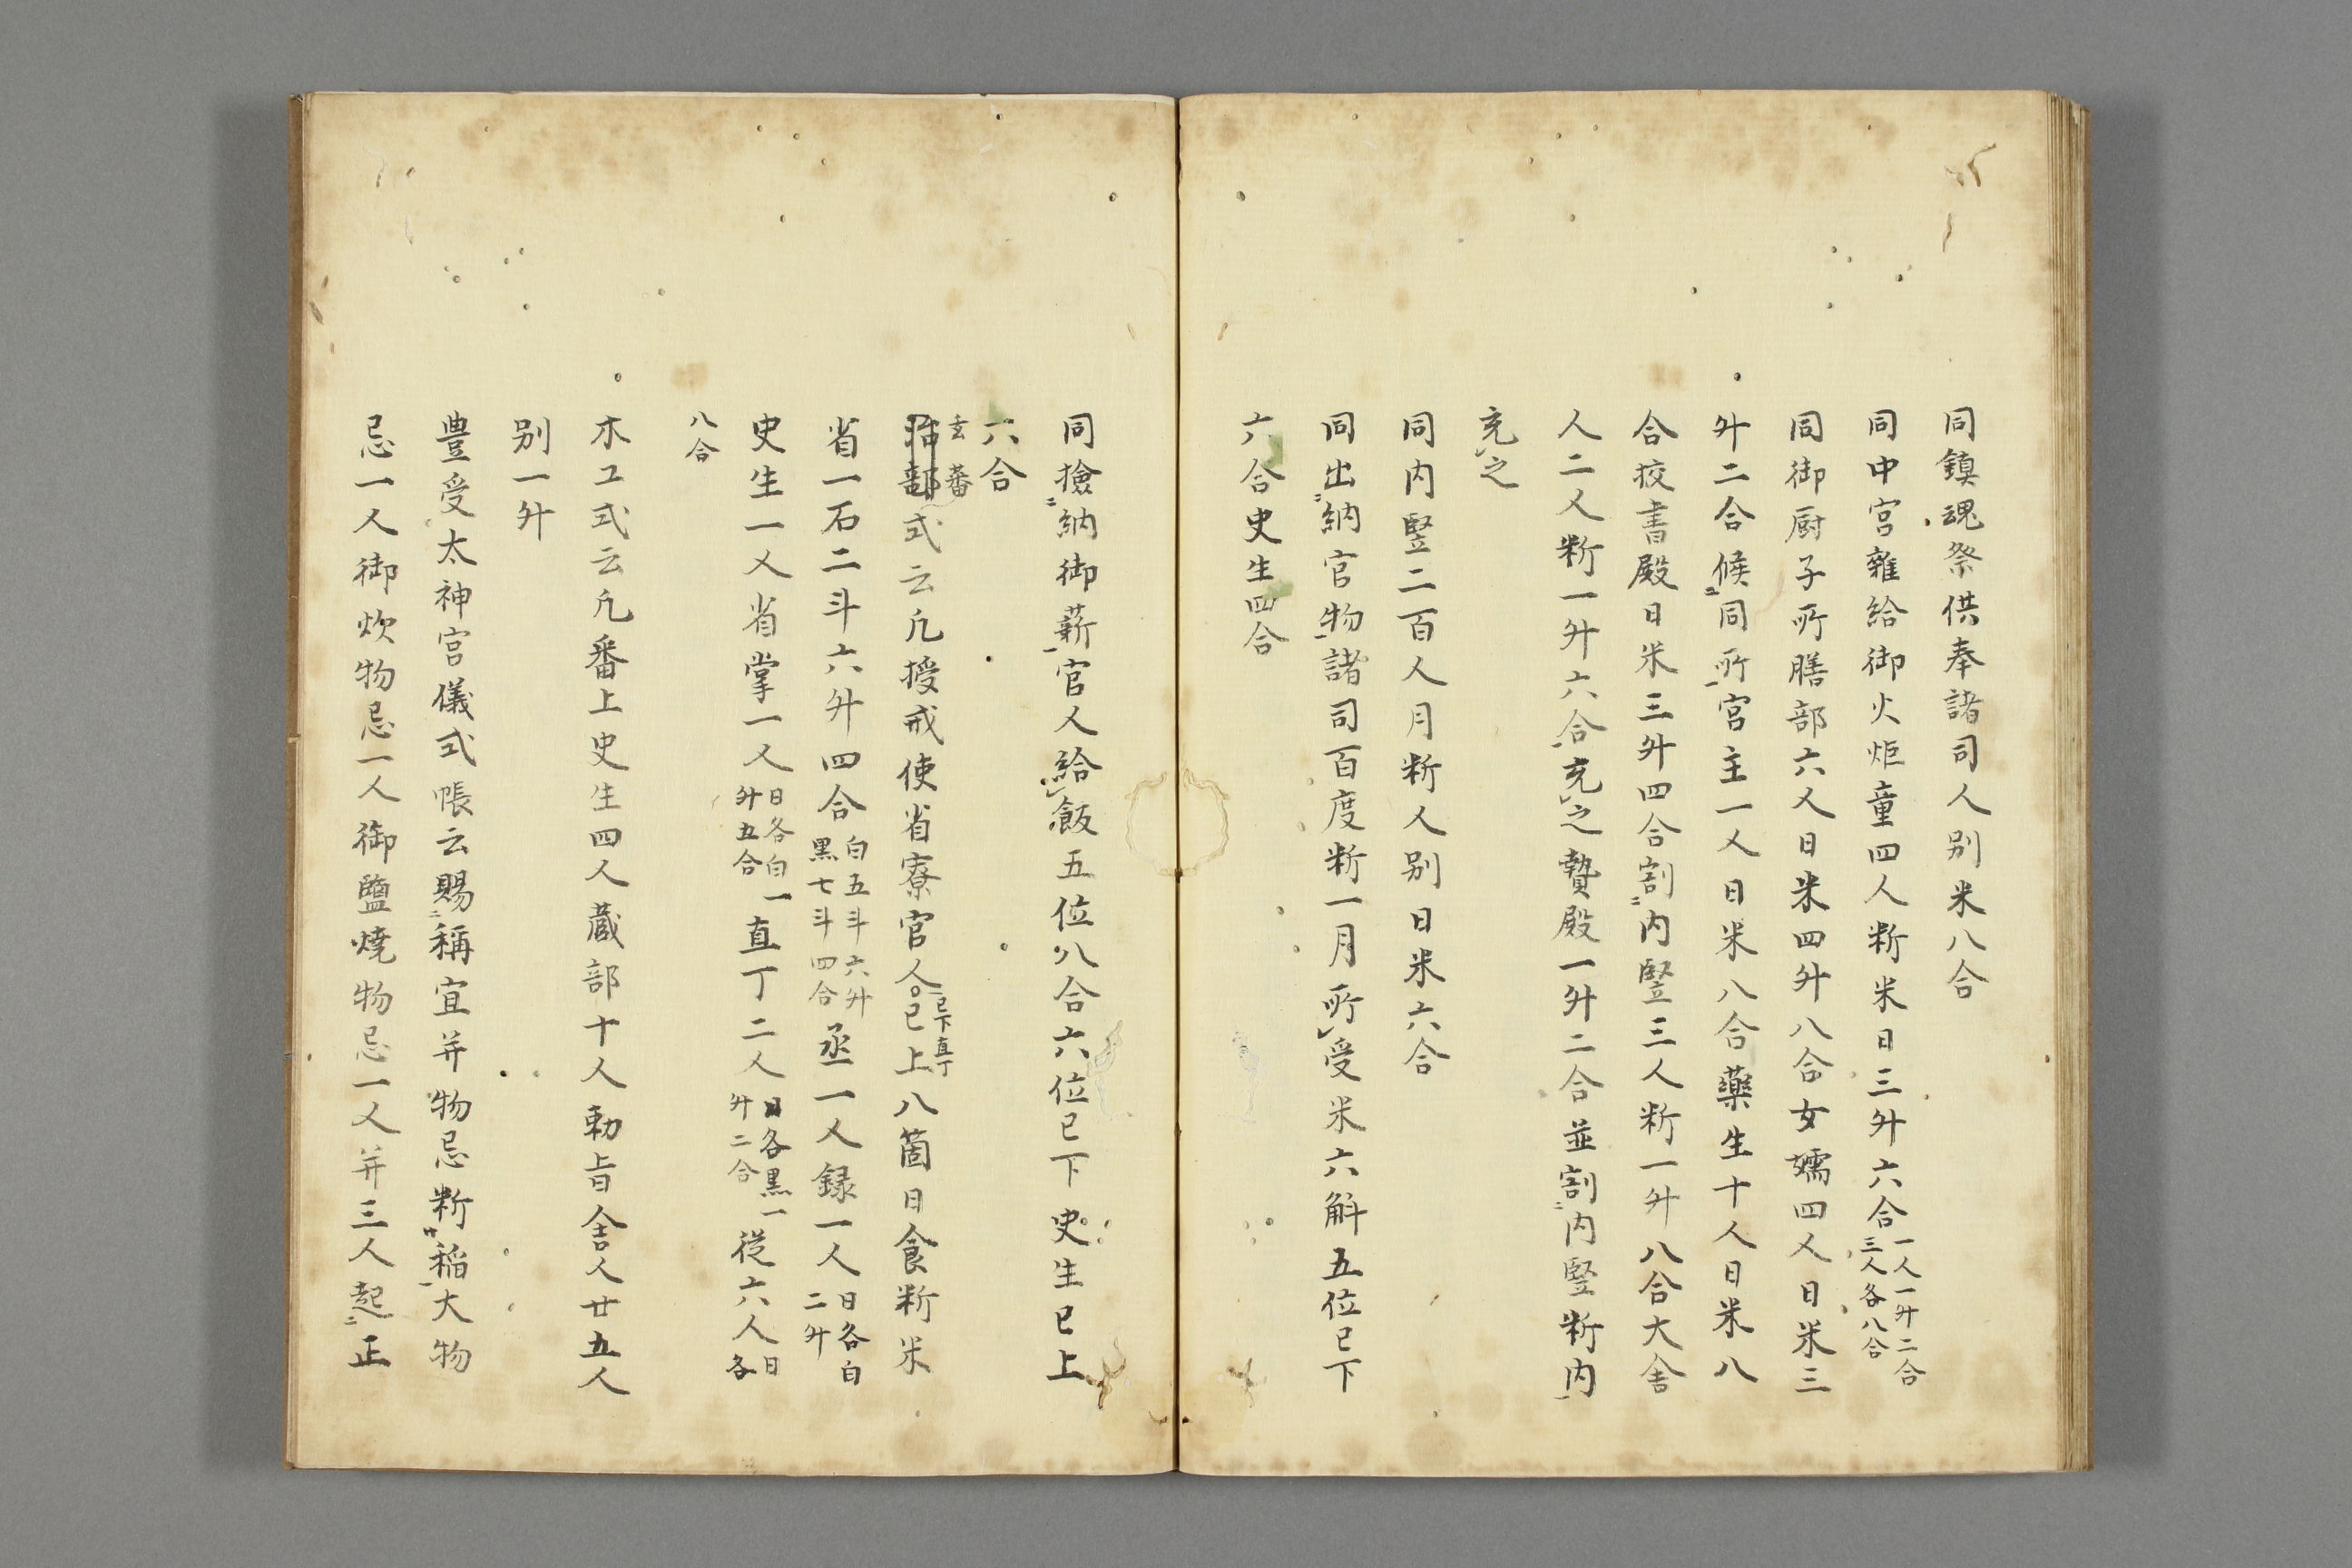 同鎮魂祭供奉諸司人別米八合
同中宮雑給御火炬童四人新米日三升六合一人一升二合三人各八合
同御厨子所膳部六人日米四升八合女孺四人日米三
升二合候同所宮主一人日米八合藥生十人日米八
合挍書殿日米三升四合割内竪三人新一升八合大舎
人二人新一升六合充之贄殿一升二合並割内竪新内
充之
同内竪二百人月新人別日米六合
同出納官物諸司百度新一月所受米六斛五位已下
六合史生四合
同撿納御薪官人給飯五位八合六位已下史生已上
六合
玄蕃
治部式云凡授戒使省寮官人已上八箇日食新米
已下直丁
省一石二斗六升四合白五斗六升黒七斗四合丞一人録一人日各白二升
史生一人省掌一人日各白一升五合直丁二人日各黒一升二合従六人日各
八合
木工式云凡番上史生四人蔵部十人勅旨舎人廿五人
別一升
豊受太神宮儀式帳云賜稱宜并物忌新稲大物
忌一人御炊物忌一人御鹽焼物忌一人并三人起正